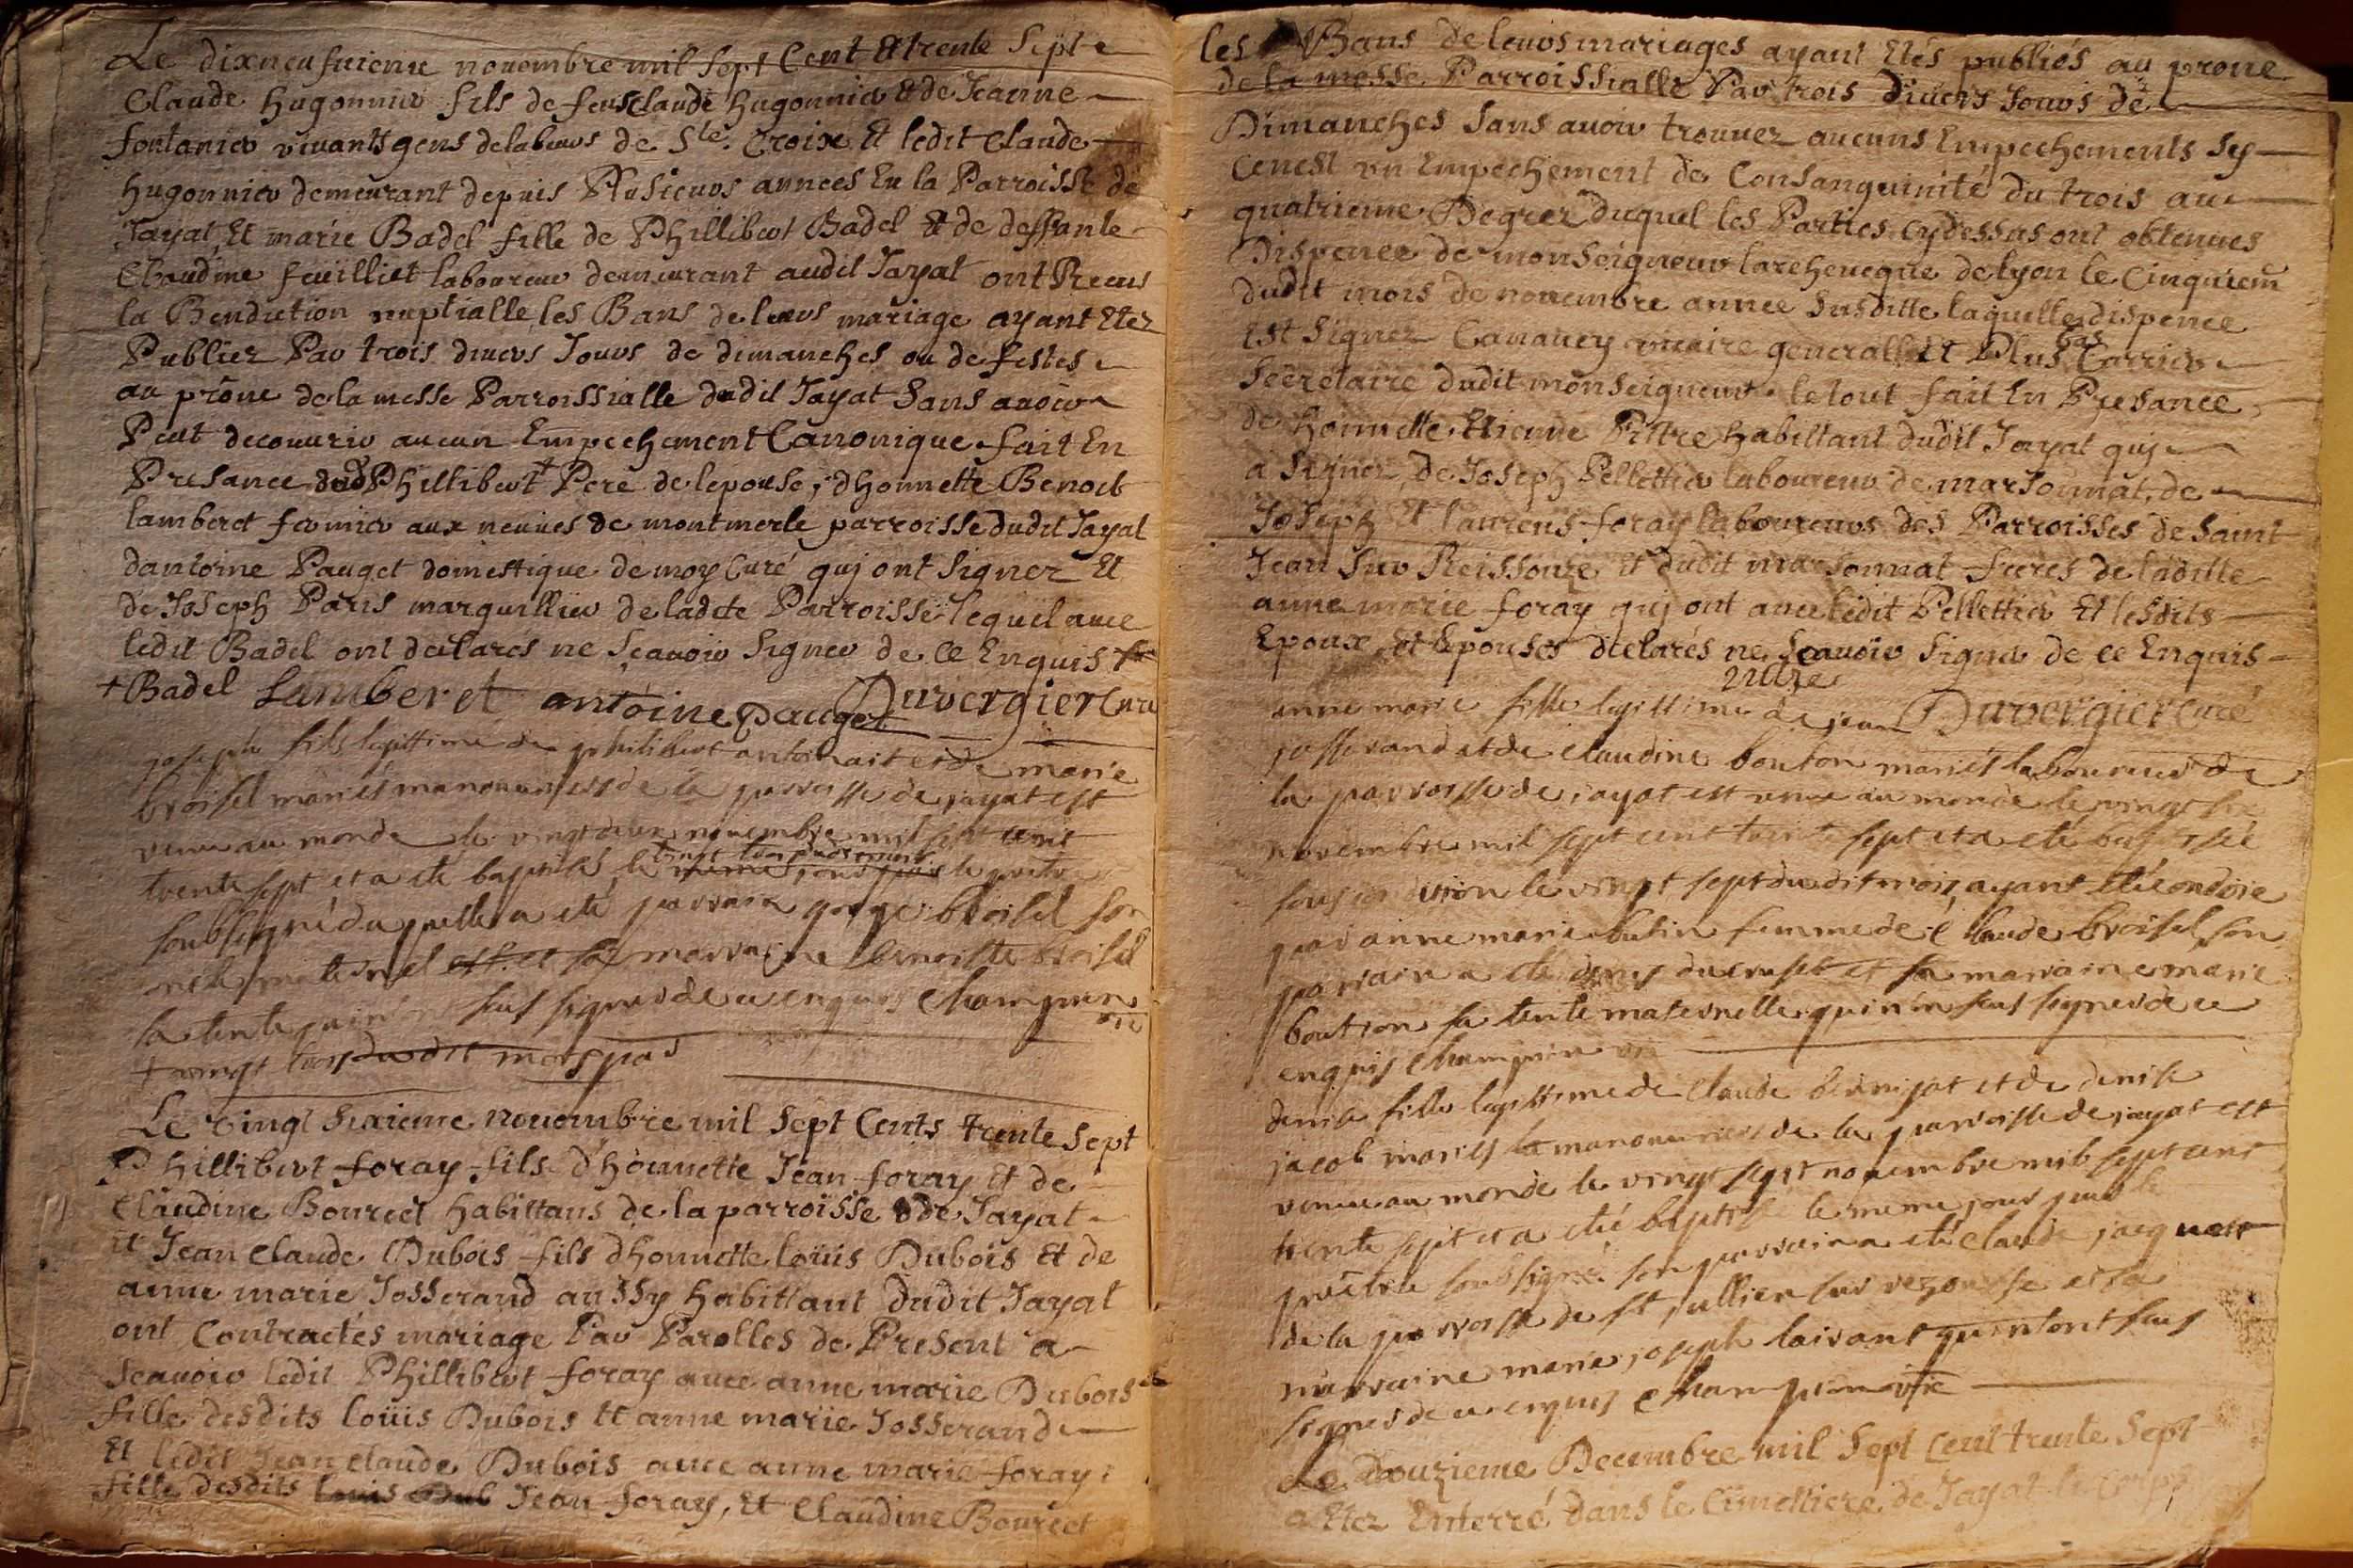 Le dixneufuieme nouembre mil sept Cent Et trente sept
Claude hugonnier fils de feu Claude hugonnier Et de Jeanne
fontanier viuants gens delabeurs de Ste. Croix Et ledit Claude
hugonnier demeurant depuis Plusieurs années En la Parroisse de
Jayat, Et marie Badel fille de Phillibert Badel Et de deffunte
Claudine feüilliet laboureur demeurant audit Jayat ont Receus
la Benidiction nuptialle, les Bans de leurs mariage ayant Etez
Publiez Par trois diuers Jours de dimanches ou de festes
au prône de la messe Parroissialle dudit Jayat Sans auoir
Peut decouurir aucun Empechement Canonique. fait En
Presance dud Phillibert + Pere de lepouse, dhonnette Benoit
lamberet fermier aux neuues de montmerle parroisse dudit Jayat
dantoine Pauget domestique de moy Curé qui ont Signez Et
de Joseph Paris marguillier de ladite Parroisse lequel auec
ledit Badel ont declarés ne Sçauoir Signer de Ce Enquis
+ Badel Lamberet antoine pauget Duvergier Curé
joseph fils legittime de philibert antoinait et de marie
broisel mariés manouuriers de la parroisse de jayat est
venu au monde le vingt deux nouembre mil sept cent
trente sept et a été baptisé le vingt trois dudit mois meme jour par le pretre
soubsigné duquelle a été parrain george broisel son
oncle maternel est et sa marraine benoitte broisel
sa tente qui n'ont seus signer de ce enquis Champion vic
+ vingt trois dudit mois par
Le vingt Sixieme nouembre mil Sept Cents trente Sept
Phillibert foray fils d'honnette Jean foray Et de
Claudine Bourcet habittans de la parroisse de Jayat
et Jean Claude Dubois fils dhonnette loüis Dubois Et de
anne marie Josserand aussy habittant dudit Jayat
ont Contractés mariage Par Parolles de Present a
Scauoir ledit Phillibert foray auec anne marie Dubois
fille desdits loüis Dubois Et anne marie Josserand
Et ledit Jean Claude Dubois auec anne marie foray
fille desdits louis Dub Jean foray, Et Claudine Bourcet
les Bans de leurs mariages ayant Etés publiés au prone
de la messe Parroissialle Par trois diuers Jours de
Dimanches Sans auoir trouuez aucuns Empechements Sy
Cenest un Empechement de Consanguinité du trois au
quatrieme Degrez duquel les Parties cydessus ont obtenues
Dispence de monseigneur larcheueque de lyon le Cinquiem
dudit mois de nouembre année Susditte laquelle dispence
Est Signez Canauey vicaire generall Et Plus bas Carrier
Secretaire dudit monseigneur. le tout fait En Presance
de honnette Etienne Pittre habittant dudit Jayat qui
a Signez, de Joseph Pellettier laboureur de marsonnat, de
Joseph Et laurens foray laboureurs des Parroisses de Saint
Jean Sur Reissouze et dudit marsonnat freres de laditte
anne marie foray qui ont auec ledit Pellettier Et lesdits
Epoux Et Epouses declarés ne Scauoir Signer de ce Enquis
Duvergier Curé
anne marie fille legittime de jean
josserand et de claudine bouton mariés laboureurs de
la parroisse de jayat est venue au monde le vingt six
novembre mil sept cent trente sept et a été baptisée
sous condition le vingt sept dudit mois, ayant été ondoiée
par anne marie butin femme de claude broisel, son
parrain a été denis ducruset et sa marraine marie
boution sa tente maternelle qui n'on seus signer de ce
enquis Champion vic
denise fille legittime de claude bernigat et de denise
jacob mariés la manouuriers de la parroisse de jayat est
venue au monde le vingt sept nouembre mil sept cent
trente sept et a été baptisée le meme jour par le
prêtre soubsigné. son parrain a été claude jacquet
de la parroisse de st jullien sur rezousse et sa
marraine marie joseph laivant qui n'ont seus
signer de ce enquis Champion vic
Le Douzieme Decembre mil Sept Cent trente Sept
a Etez Enterré dans le Cimettiere de Jayat le corps